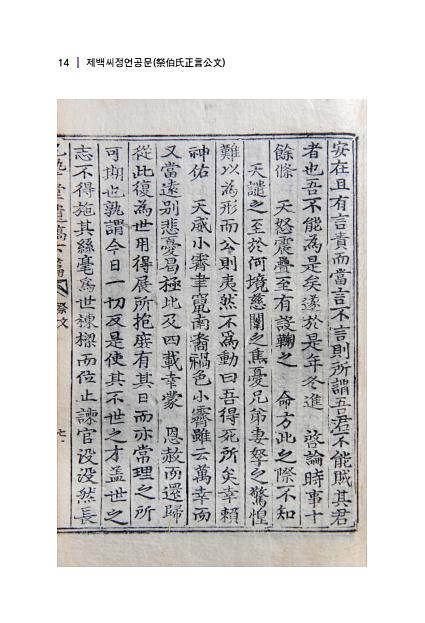 14 | 제백씨정언공문(祭伯氏正言公文)
安在且有言責而當言不言則所謂吾君不能賊其君
者也吾不能為是矣遂於是年冬進 啓論時事十
餘條 天怒震疊至有設鞫之 命方此之際不知
天譴之至於何境慈闈之焦憂兄弟妻孥之驚惶
難以為形而公則夷然不爲動曰吾得死所矣幸賴
神佑 天威小霽聿竄南裔禍色小霽雖云萬幸而
又當遠别悲憂曷極此及四載幸蒙 恩赦而還歸
從此復為世用得展所抱庶有其日而亦常理之所
可期也孰謂今日一切反是使其不世之才盖世之
志不得施其絲毫爲世棟樑而位止諫官没没然長
堂遺稿下篇 祭文